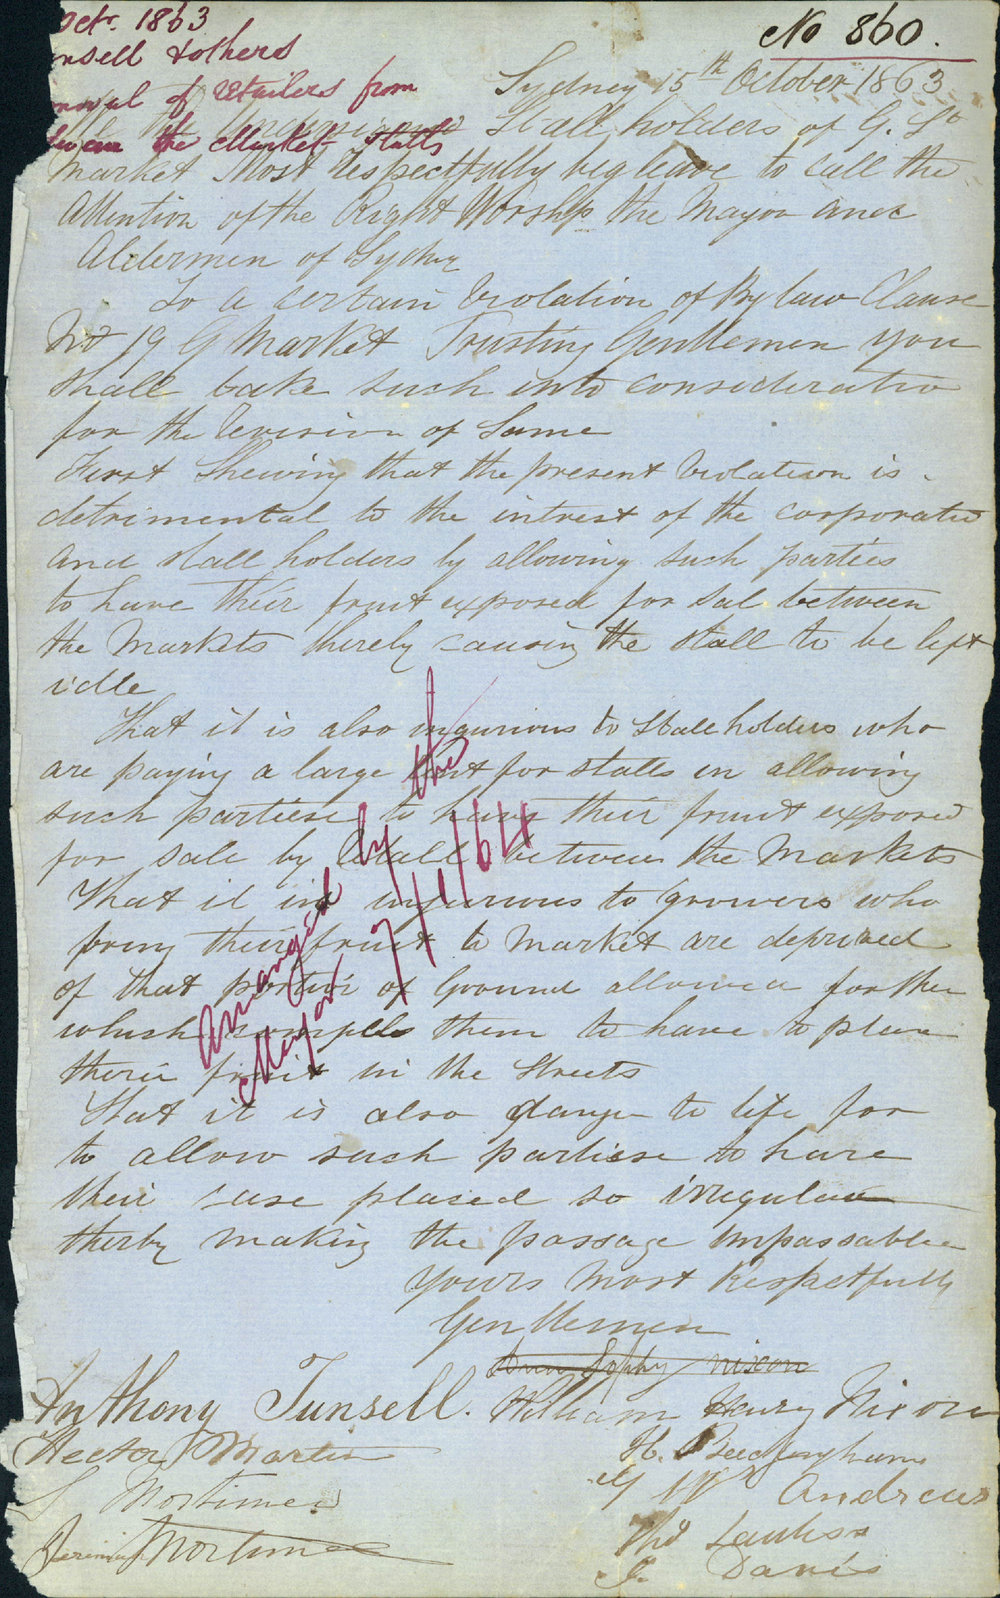 Octr. 1863
No 860.
nsell & others
moval of retailers from
Sydney 15th October 1863
the Market Stalls
Stall holders of G. St
Market Most Respectfully beg leave to call the
Attention of the Right Worship the Mayor and
Aldermen of Sydney
To a certain Violation of By law Clause
No 19 G Market Trusting Gentlemen you
shall take such into consideratio
for the Revision of Same
First Shewing that the present Violation is
detrimental to the intrest of the corporatio
and stall holders by allowing such parties
to have their fruit exposed for sal between
the Markets therely causing the stall to be left
idle
That it is also ingurious to Stall holders who
are paying a large rent for stalls in allowing
such partiese to have their fruit exposed
for sale by Retail between the Markets
That it is ingurious to Growers who
bring their fruit to Market are deprived
of that portion of Ground allowed for the
which compells them to have to place
their fruit in the Streets
That it is also danger to life for
to allow such partiese to have
their case placed so irregular
therby making the passage impassable
Yours Most Respetfully
Gentlemen
Arranged by the
Mayor 7/1/64
Ann Sophy Nixon
Anthony Tunsell. William Henry Nixon
Hector Martin
H. Beedingham
Mortimer
G Wm Andrews
Jeremiah Mortimer
Thos
J. Davis